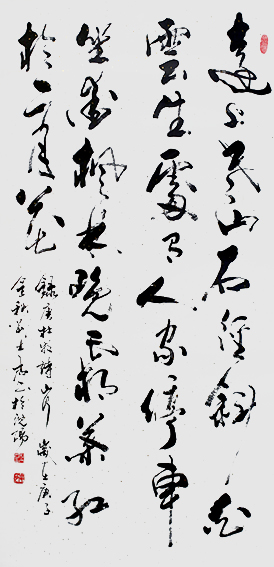 遠上寒山石徑斜白
雲生處有人家停車
坐愛楓林晚霜葉紅
於二月花
錄唐杜牧詩山行 歲在庚子
金秋 於沈陽